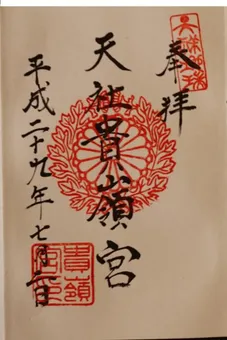 奉拝
天社貴嶺宮
平成二十九年七月二日
貴嶺
宮印